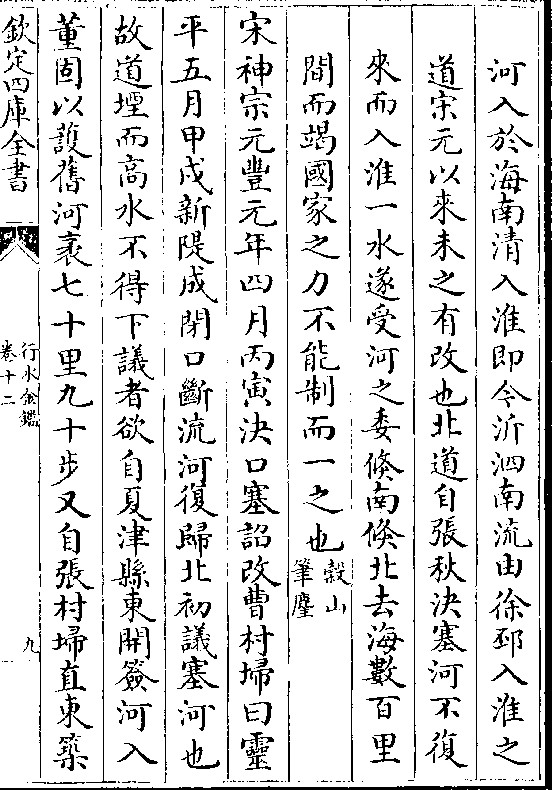 河入於海南清入淮即今沂泗南流由徐邳入淮之
道宋元以來未之有改也北道自張秋決塞河不復
來而入淮一水遂受河之委倐南倐北去海數百里
間而竭國家之力不能制而一之也榖山筆麈
宋神宗元豐元年四月丙寅決口塞詔改曹村埽曰靈
平五月甲戌新隄成閉口斷流河復歸北初議塞河也
故道堙而高水不得下議者欲自夏津縣東開簽河入
董固以護舊河袤七十里九十步又自張村埽直東築
欽定四庫全書
行水金鑑
卷十二
九